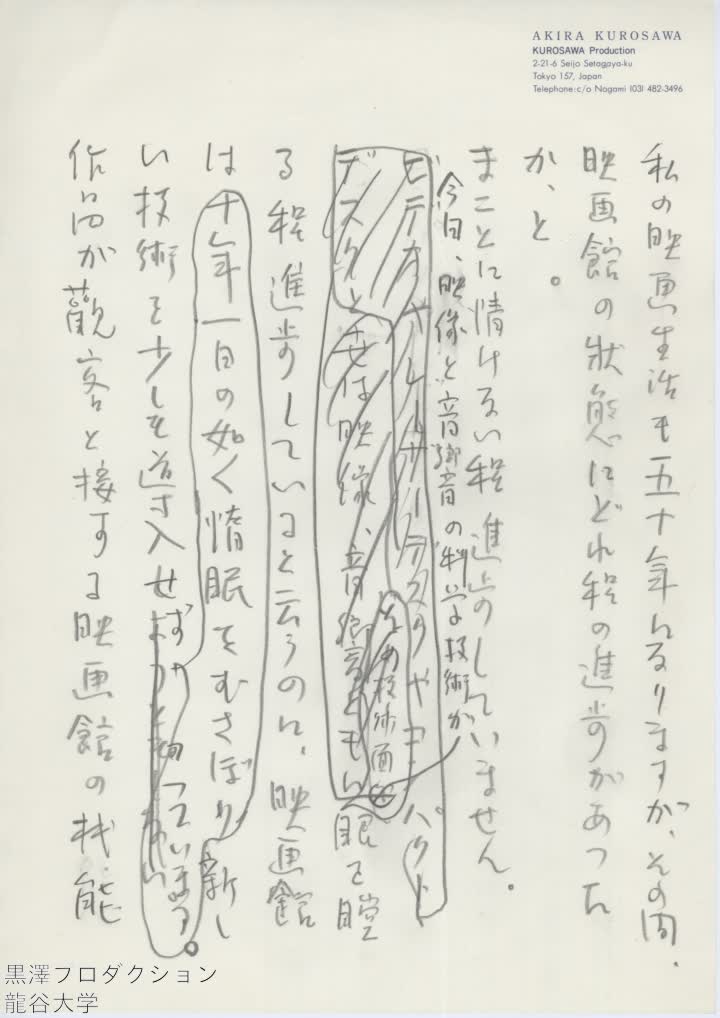 AKIRA KUROSAWA
KUROSAWA Production
2-21-6 Seijo Setagaya-ku
Tokyo 157, Japan
Telephone:c/o Nogami (03) 482-3496
私の映画生活も五十年になりますが、その間、
映画館の状態にどれ程の進歩があった
か、と。
まことに情けない程進歩していません。
今日、映像と音響の科学技術が
ビデオやレーザーディスクやコンパクト
ディスクと
は映像、音響ともに眼を瞠
る程進歩していると云うのに、映画館
は十年一日の如く惰眠をむさぼり新し
い技術を少しも導入せず
作品が観客と接する映画館の状態
黒澤プロダクション
龍谷大学